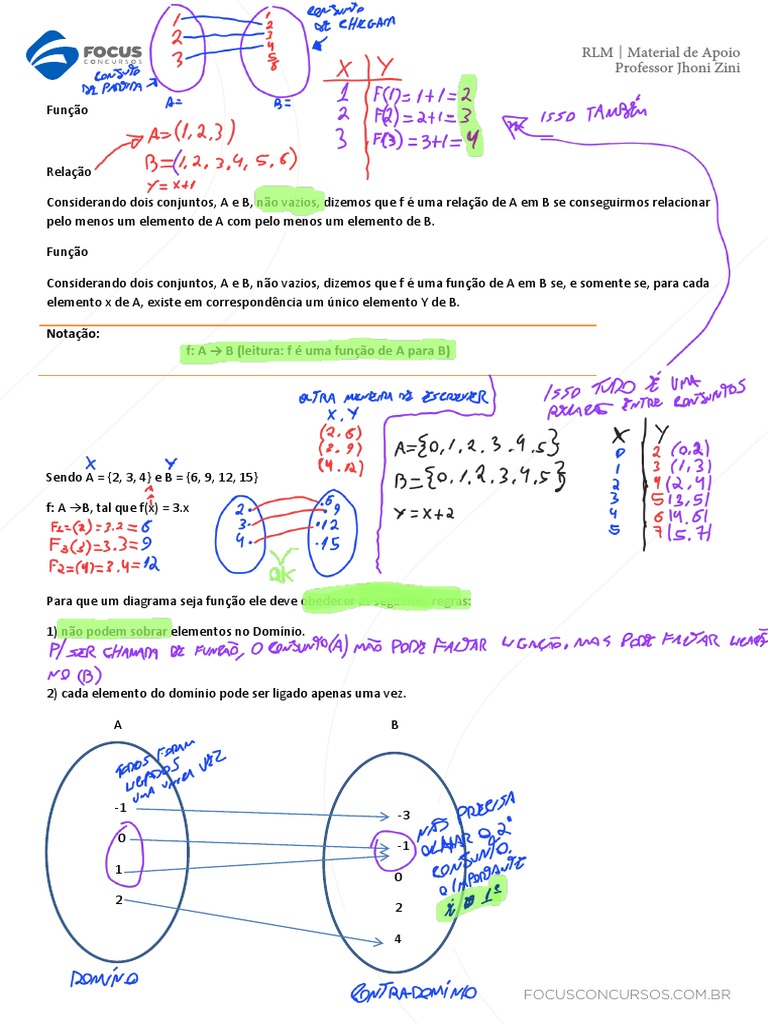 FOCUS
CONCURSOS
RLM | Material de Apoio
Professor Jhoni Zini
CONJUNTO
DE CHEGADA
1
2
3
1
2
3
4
5
6
CONJUNTO
DE PARTIDA
A=
B=
X Y
1 F(1)=1+1=2
2 F(2)=2+1=3
3 F(3)=3+1=4
ISSO TAMBÉM
Função
A=(1,2,3)
B=(1,2,3,4,5,6)
Y=X+1
Relação
Considerando dois conjuntos, A e B, não vazios, dizemos que f é uma relação de A em B se conseguirmos relacionar
pelo menos um elemento de A com pelo menos um elemento de B.
Função
Considerando dois conjuntos, A e B, não vazios, dizemos que f é uma função de A em B se, e somente se, para cada
elemento x de A, existe em correspondência um único elemento Y de B.
Notação:
f: A → B (leitura: f é uma função de A para B)
OUTRA MANEIRA DE ESCREVER
X, Y
(2,6)
(3,9)
(4,12)
ISSO TUDO É UMA
ENTRE CONJUNTOS
A={0,1,2,3,4,5}
B={0,1,2,3,4,5}
Y=X+2
X Y
0 2 (0,2)
1 3 (1,3)
2 4 (2,4)
3 5 (3,5)
4 6 (4,6)
5 7 (5,7)
X Y
Sendo A = {2, 3, 4} e B = {6, 9, 12, 15}
f: A →B, tal que f(x) = 3.x
F1=(2)=3.2=6
F3(3)=3.3=9
F2=(4)=3.4=12
2.
3.
4.
.6
.9
.12
.15
OK
Para que um diagrama seja função ele deve obedecer as seguintes regras:
1) não podem sobrar elementos no Domínio.
P/ SER CHAMADA DE FUNÇÃO, O CONJUNTO(A) NÃO PODE FALTAR LIGAÇÃO, MAS PODE FALTAR LIGAÇÃO
NO (B)
2) cada elemento do domínio pode ser ligado apenas uma vez.
A
B
TODOS FORAM
LIGADOS
UMA ÚNICA VEZ
-1
0
1
2
-3
-1
0
2
4
NÃO PRECISA
OLHAR O 2º
CONJUNTO.
O IMPORTANTE
É O 1º
DOMÍNIO
CONTRADOMÍNIO
FOCUSCONCURSOS.COM.BR